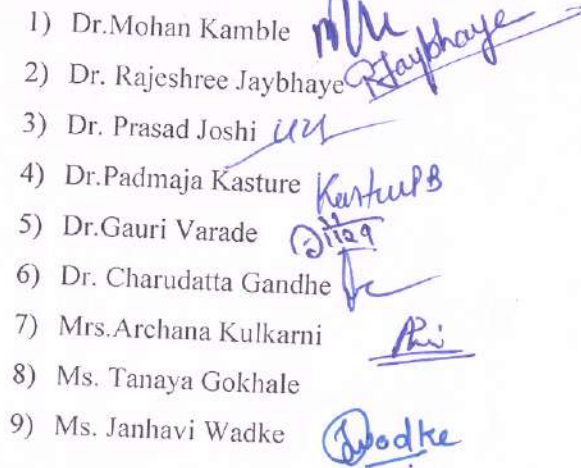 1) Dr.Mohan Kamble
2) Dr. Rajeshree Jaybhaye RJaybhaye
3) Dr. Prasad Joshi
4) Dr.Padmaja Kasture KasturePB
5) Dr.Gauri Varade
6) Dr. Charudatta Gandhe
7) Mrs.Archana Kulkarni
8) Ms. Tanaya Gokhale
9) Ms. Janhavi Wadke Jwadke